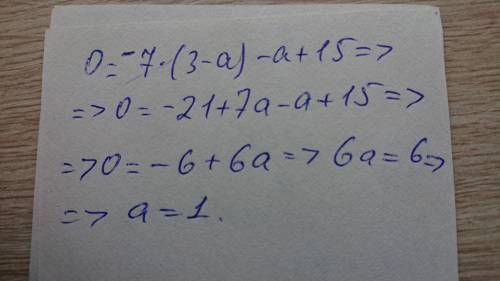 0=-7·(3-a)-a+15=>
=>0=-21+7a-a+15=>
=>0=-6+6a=>6a=6=>
=>a=1.